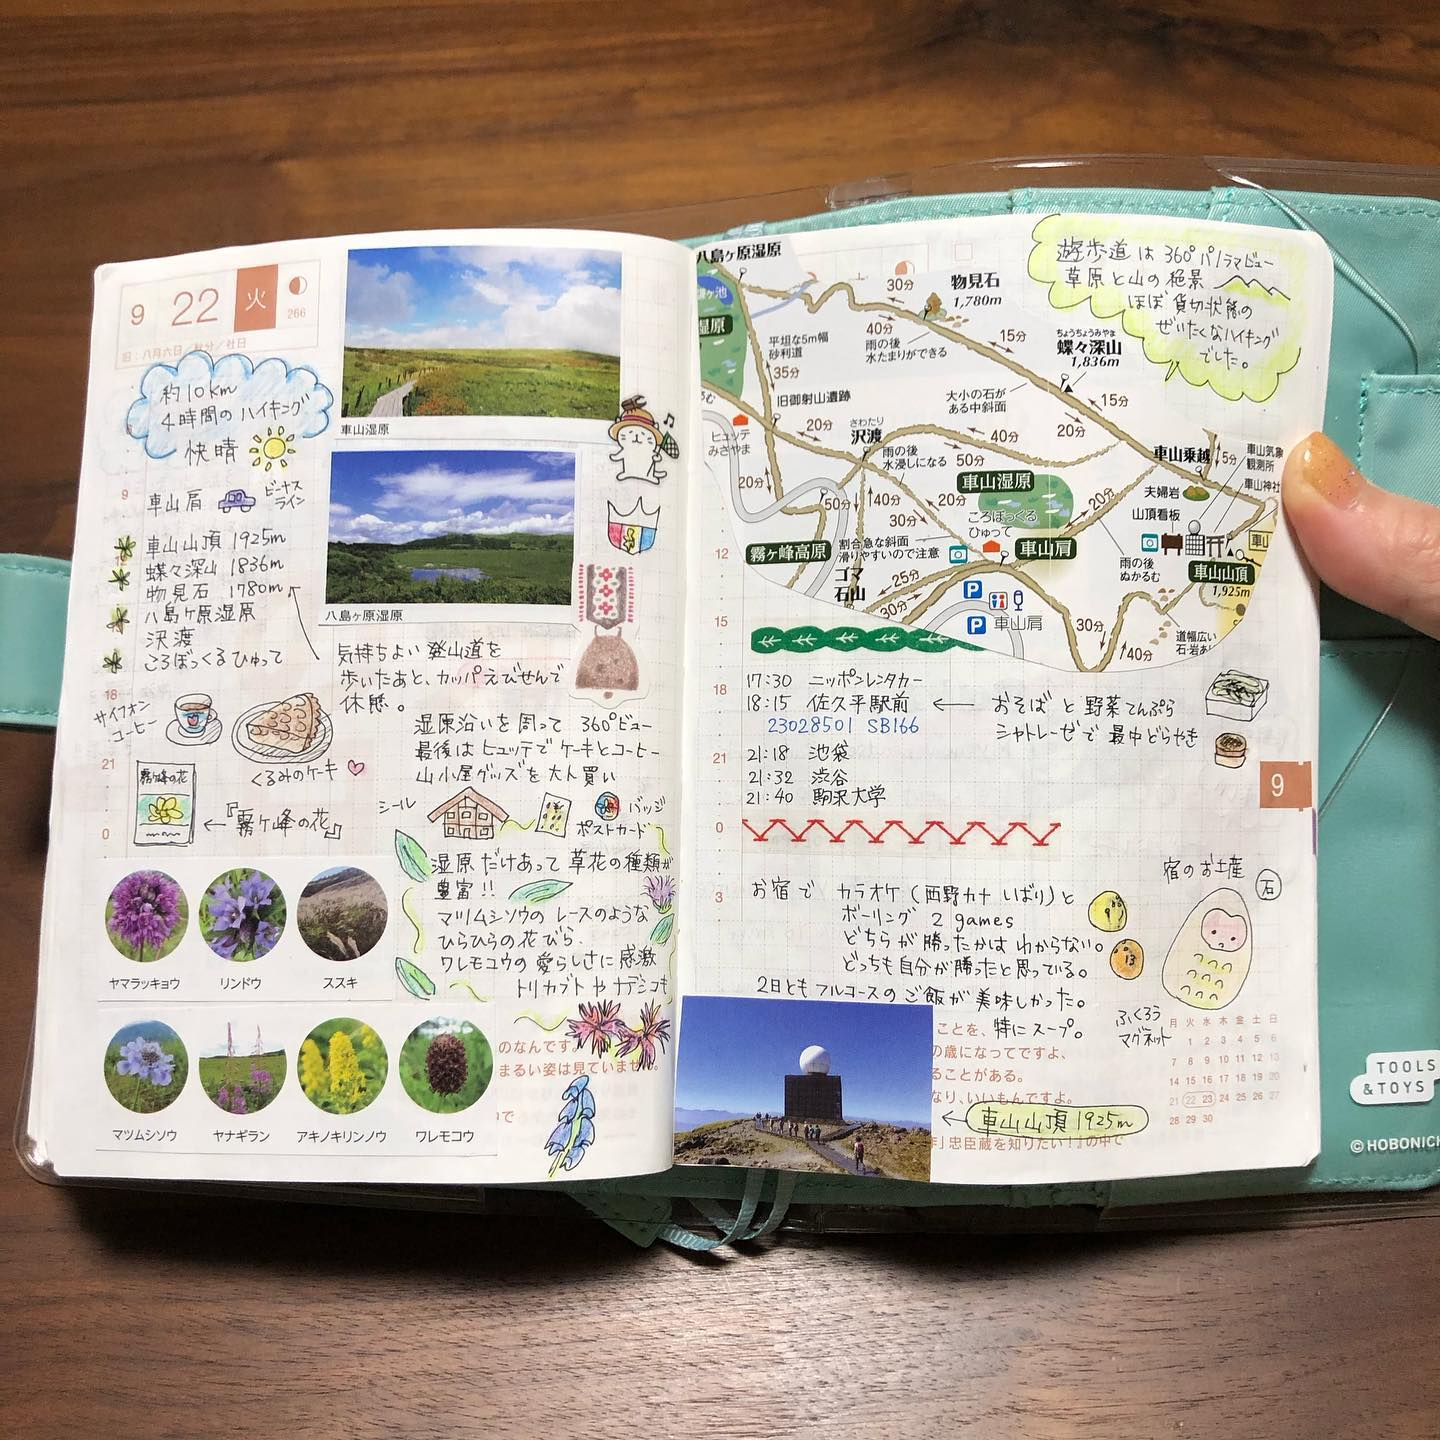 9 22 火
266
旧:八月六日/秋分/社日
約10km
4時間のハイキング
快晴
車山肩
ビーナス
ライン
車山山頂 1925m
蝶々深山 1836m
物見石 1780m
八島ヶ原湿原
沢渡
ころぼっくるひゅって
9
12
15
18
21
0
サイフォン
コーヒー
くるみのケーキ
霧ヶ峰の花
← 『霧ヶ峰の花』
車山湿原
八島ヶ原湿原
気持ちよい登山道を
歩いたあと、カッパえびせんで
休憩。
湿原沿いを周って 360°ビュー
最後はヒュッテでケーキとコーヒー
山小屋グッズを大人買い
シール
バッジ
ポストカード
湿原だけあって草花の種類が
豊富!!
マツムシソウのレースのような
ひらひらの花びら、
ワレモコウの愛らしさに感激
トリカブトやナデシコも
ヤマラッキョウ
リンドウ
ススキ
マツムシソウ
ヤナギラン
アキノキリンソウ
ワレモコウ
のなんです。
まるい姿は見ていません。
で
八島ヶ原湿原
湿原
物見石
1,780m
30分
40分
15分
雨の後
水たまりができる
ちょうちょうみやま
蝶々深山
1,836m
平坦な5m幅
砂利道
35分
旧御射山遺跡
大小の石が
ある中斜面
15分
20分
ヒュッテ
みさやま
20分
さわたり
沢渡
雨の後
水浸しになる
40分
50分
車山乗越
5分
車山気象
観測所
車山神社
20分
50分
40分
30分
車山湿原
20分
夫婦岩
山頂看板
ころぼっくる
ひゅって
霧ヶ峰高原
割合急な斜面
滑りやすいので注意
車山肩
雨の後
ぬかるむ
車山山頂
1,925m
ゴマ
石山
25分
30分
P
P 車山肩
30分
40分
道幅広い
石・岩あり
遊歩道は360°パノラマビュー
草原と山の絶景
ほぼ貸切状態の
ぜいたくなハイキング
でした。
12
15
18
21
0
3
17:30 ニッポンレンタカー
18:15 佐久平駅前 ← おそばと野菜てんぷら
23028501 SB166
シャトレーゼで最中どらやき
21:18 池袋
21:32 渋谷
21:40 駒沢大学
9
お宿で カラオケ(西野カナ いばり)と
ボーリング 2 games
どちらが勝ったかはわからない。
どっちも自分が勝ったと思っている。
2日ともフルコースのご飯が美味しかった。
特にスープ。
9
13
宿のお土産
石
ふくろう
マグネット
ことを、
の歳になってですよ、
ることがある。
なり、いいもんですよ。
← 車山山頂 1925m
』忠臣蔵を知りたい!』の中で
月 火 水 木 金 土 日
1 2 3 4 5 6
7 8 9 10 11 12 13
14 15 16 17 18 19 20
21 22 23 24 25 26 27
28 29 30
TOOLS
& TOYS
© HOBONICH